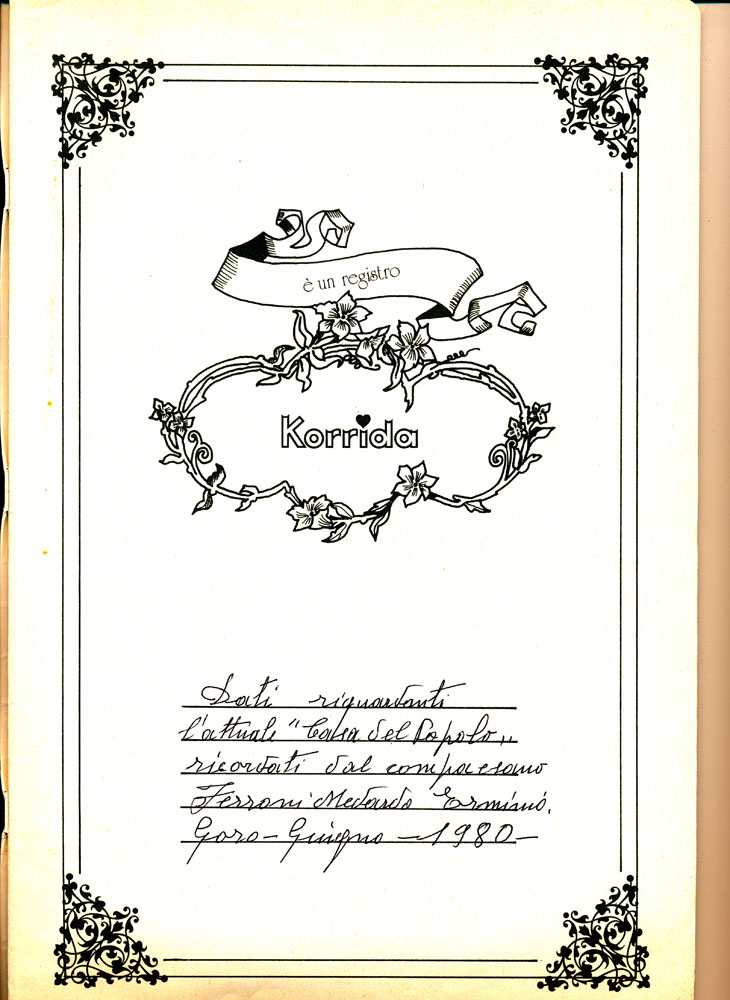 è un registro
Korrida
Dati riguardanti
l'attuale "Casa del Popolo„
ricordati dal compaesano
Ferroni Medardo Erminio.
Goro - Giugno - 1980 -